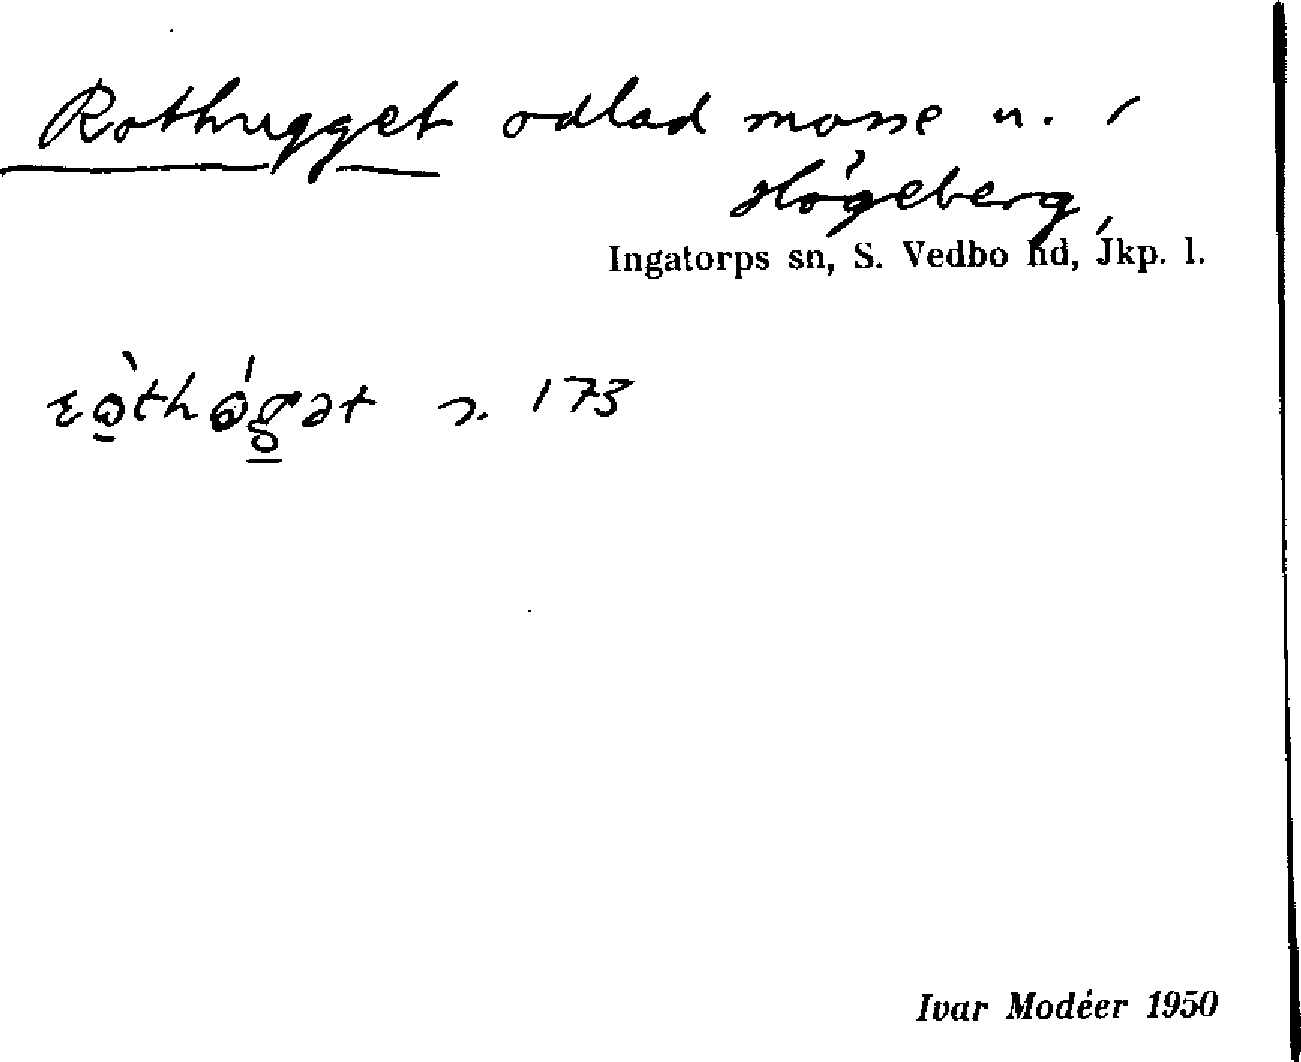 Rothugget odlad mosse u. /
Högeberg,
Ingatorps sn, S. Vedbo hd, Jkp. l.
n. 173
Ivar Modéer 1950